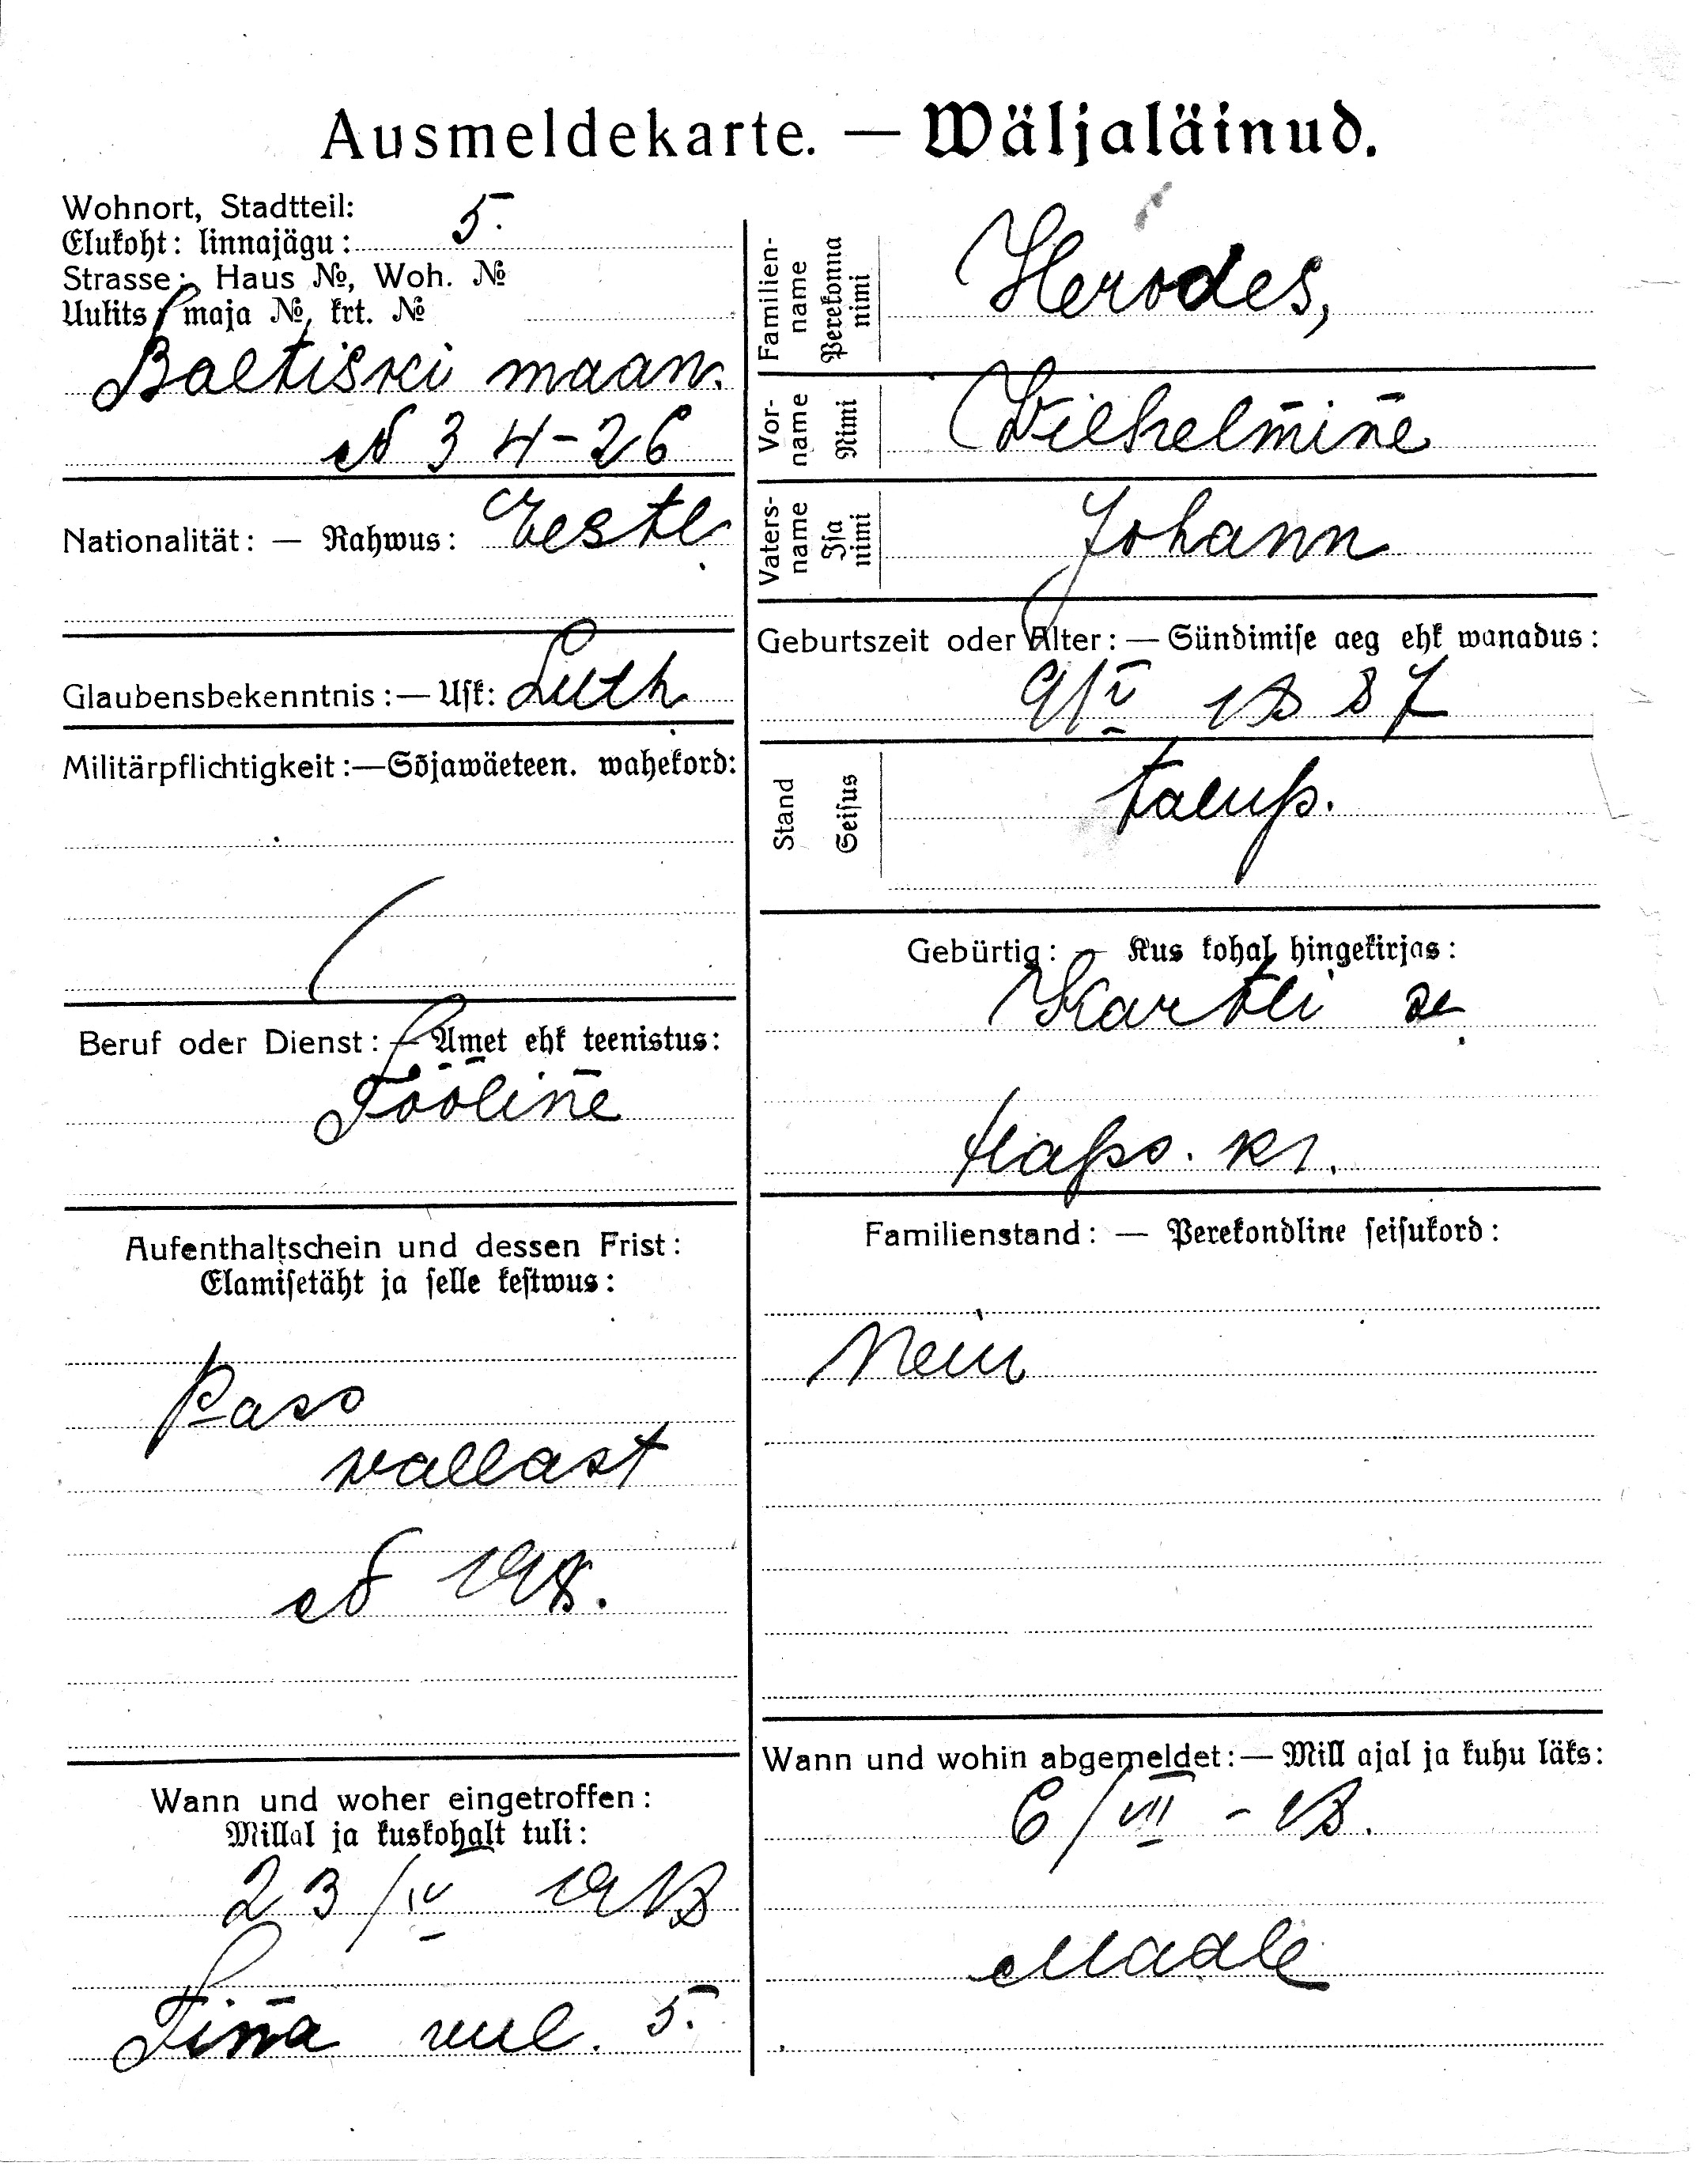 Ausmeldekarte. — Wäljaläinud.
Wohnort, Stadtteil:
Elukoht: linnajägu: 5.
Strasse; Haus №, Woh. №
Uulits, maja №, krt. №
Baltiski maan.
№ 34-26
Nationalität: — Rahwus: Eestl.
Glaubensbekenntnis: — Usk: Luth.
Militärpflichtigkeit: — Sõjawäeteen. wahekord:
Beruf oder Dienst: — Amet ehk teenistus:
Tööline
Aufenthaltschein und dessen Frist:
Elamisetäht ja selle kestwus:
Pass
vallast
№ 198.
Wann und woher eingetroffen:
Millal ja kuskohalt tuli:
23/IV 1918
Tina uul. 5.
Familien-
name
Perekonna
nimi
Herodes,
Vor-
name
Nimi
Wilhelmine
Vaters-
name
Isa
nimi
Johann
Geburtszeit oder Alter: — Sündimise aeg ehk wanadus:
9/V 1887
Stand
Seisus
talup.
Gebürtig: — Kus kohal hingekirjas:
Haps. kr.
Familienstand: — Perekondline seisukord:
Nein
Wann und wohin abgemeldet: — Mill ajal ja kuhu läks:
6/VII - 18.
Maale